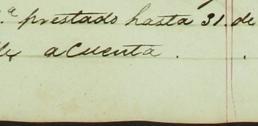 .ª prestado hasta 31. de
a cuenta . .